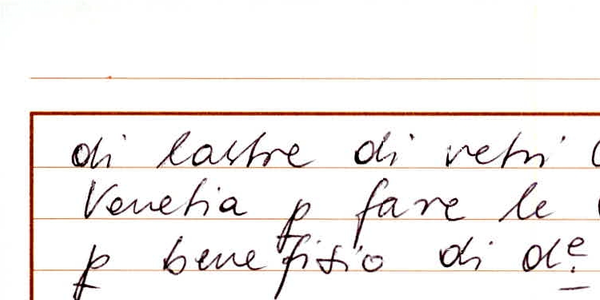 di lastre di vetri
Venetia p fare le
p benefisio di dᵉ